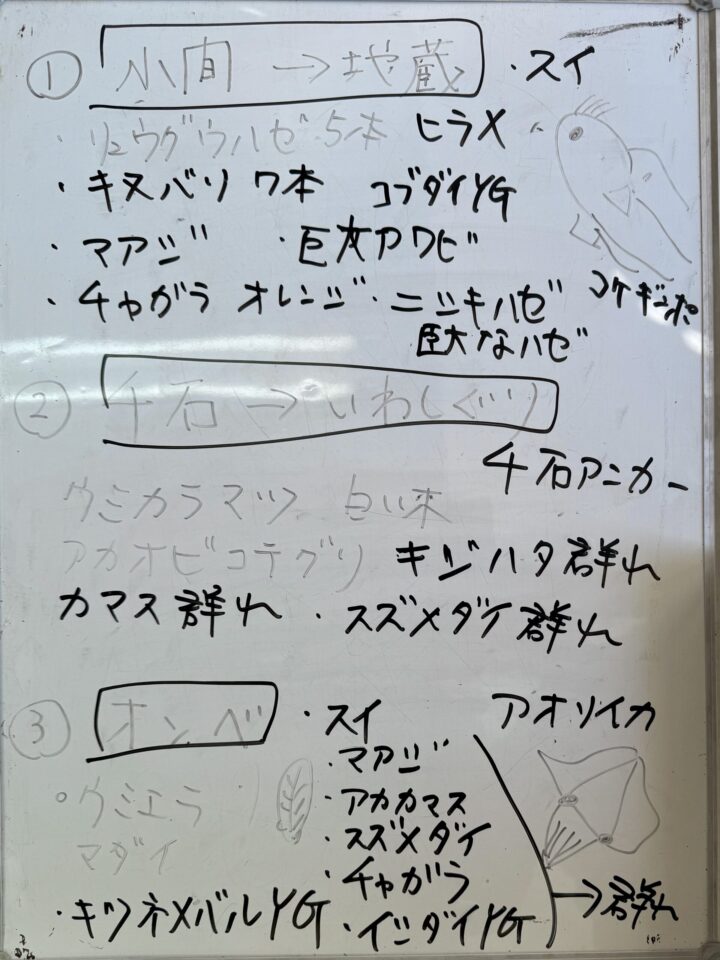 ① 小間 → 地蔵 ・スイ
・リュウグウハゼ 5本 ヒラメ
・キヌバリ 7本 コブダイYG
・マアジ ・巨大アワビ
・チャガラ オレンジ ・ニシキハゼ コケギンポ
巨大なハゼ
② 千石 → いわしぐり
千石アンカー
ウミカラマツ 白い木
アカオビコテグリ キジハタ群れ
カマス群れ ・スズメダイ群れ
③ オンベ ・スイ アオリイカ
・マアジ
・ウミエラ ・アカカマス
マダイ ・スズメダイ
・チャガラ → 群れ
・キツネメバルYG ・イシダイYG